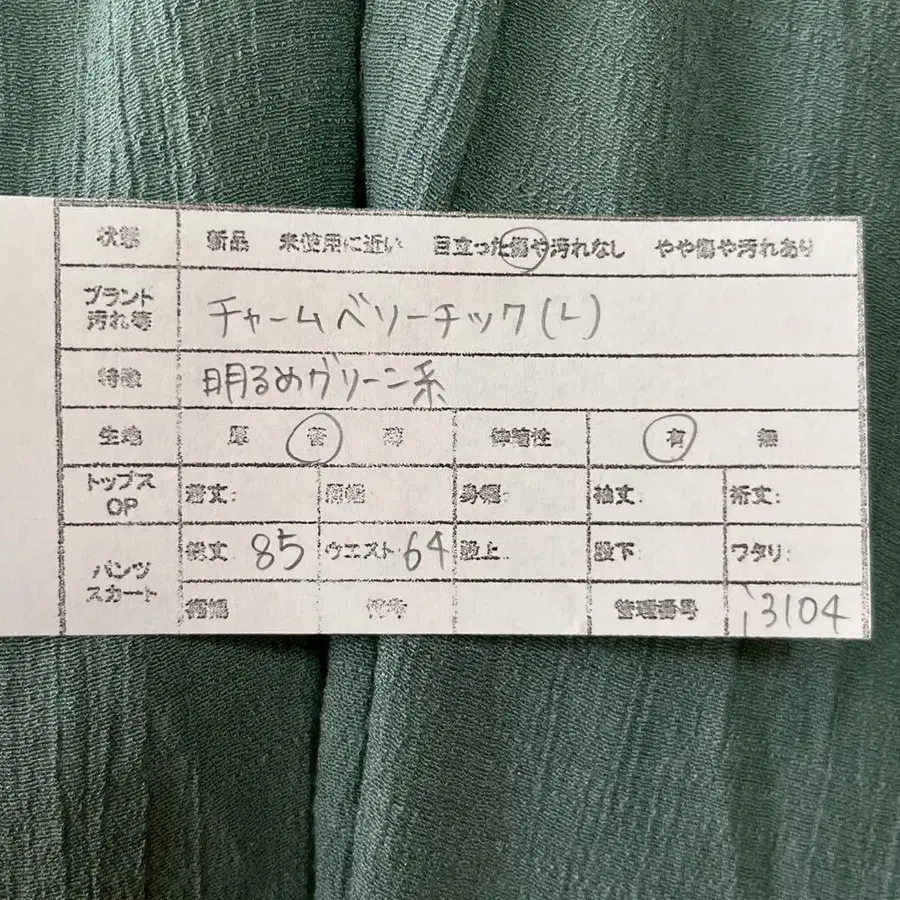 状態 新品 未使用に近い 目立った傷や汚れなし やや傷や汚れあり
ブランド
汚れ等
チャームベリーチック(L)
特徴 明るめグリーン系
生地 厚 普 薄 伸縮性 有 無
トップス
OP
着丈: 肩幅 身幅: 袖丈: 裄丈:
パンツ
スカート
総丈 85 ウエスト 64 股上 股下 ワタリ:
裾幅 備考 管理番号 i3104